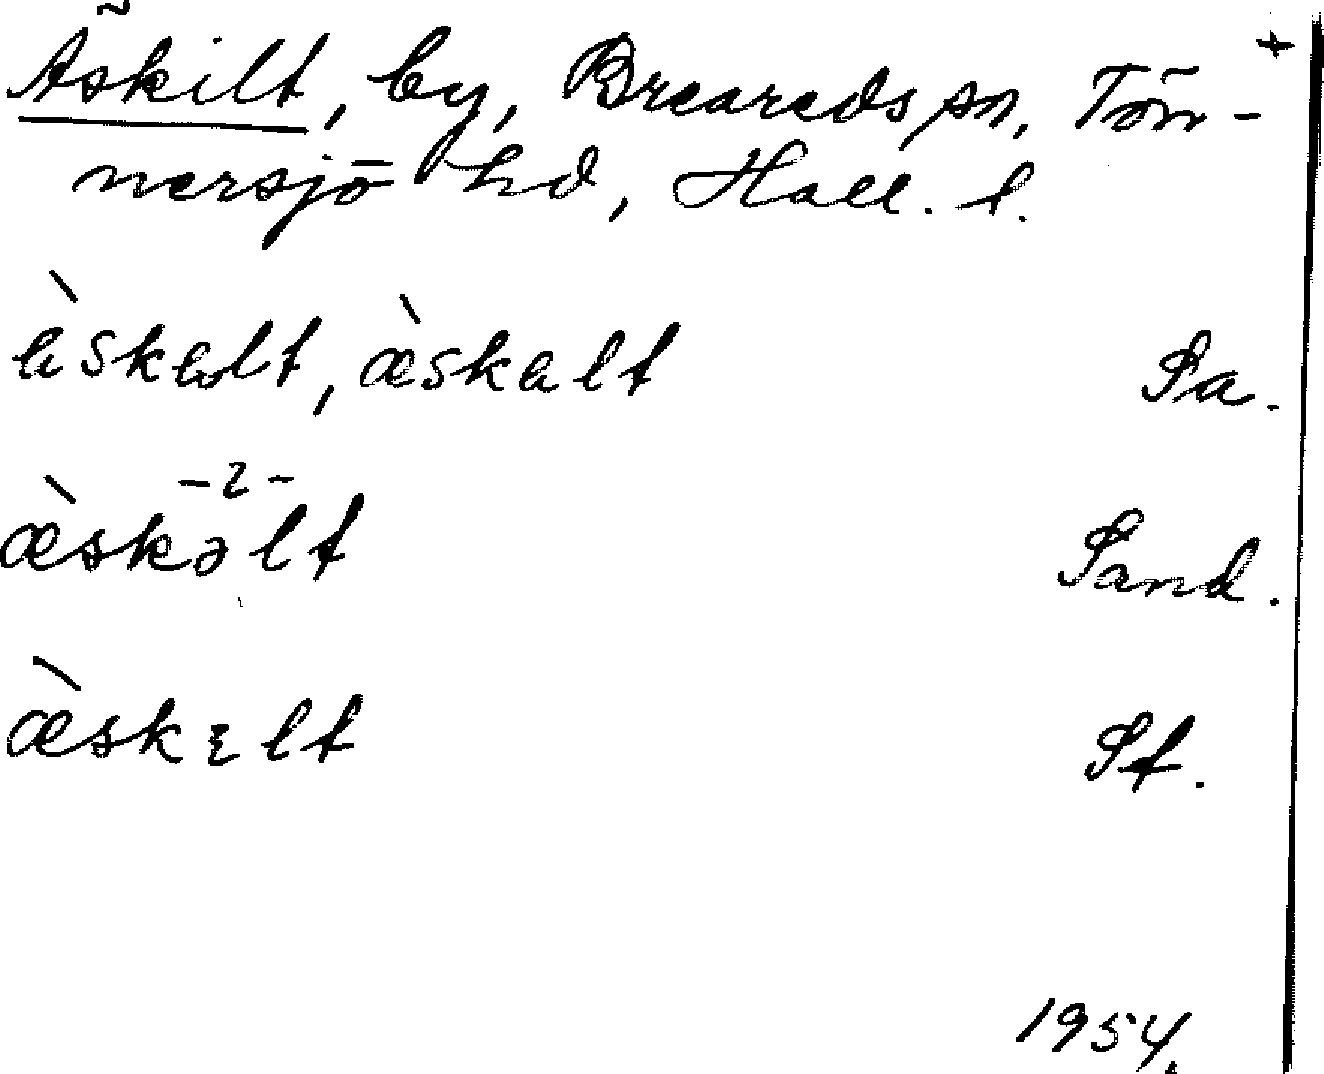 Äskilt, by, Breareds sn, Tön-
nersjö hd, Hall. l.
àskalt, æ̀skalt Sa.
-ɩ-
æ̀skəlt Sand.
æ̀skɩlt St.
1954.